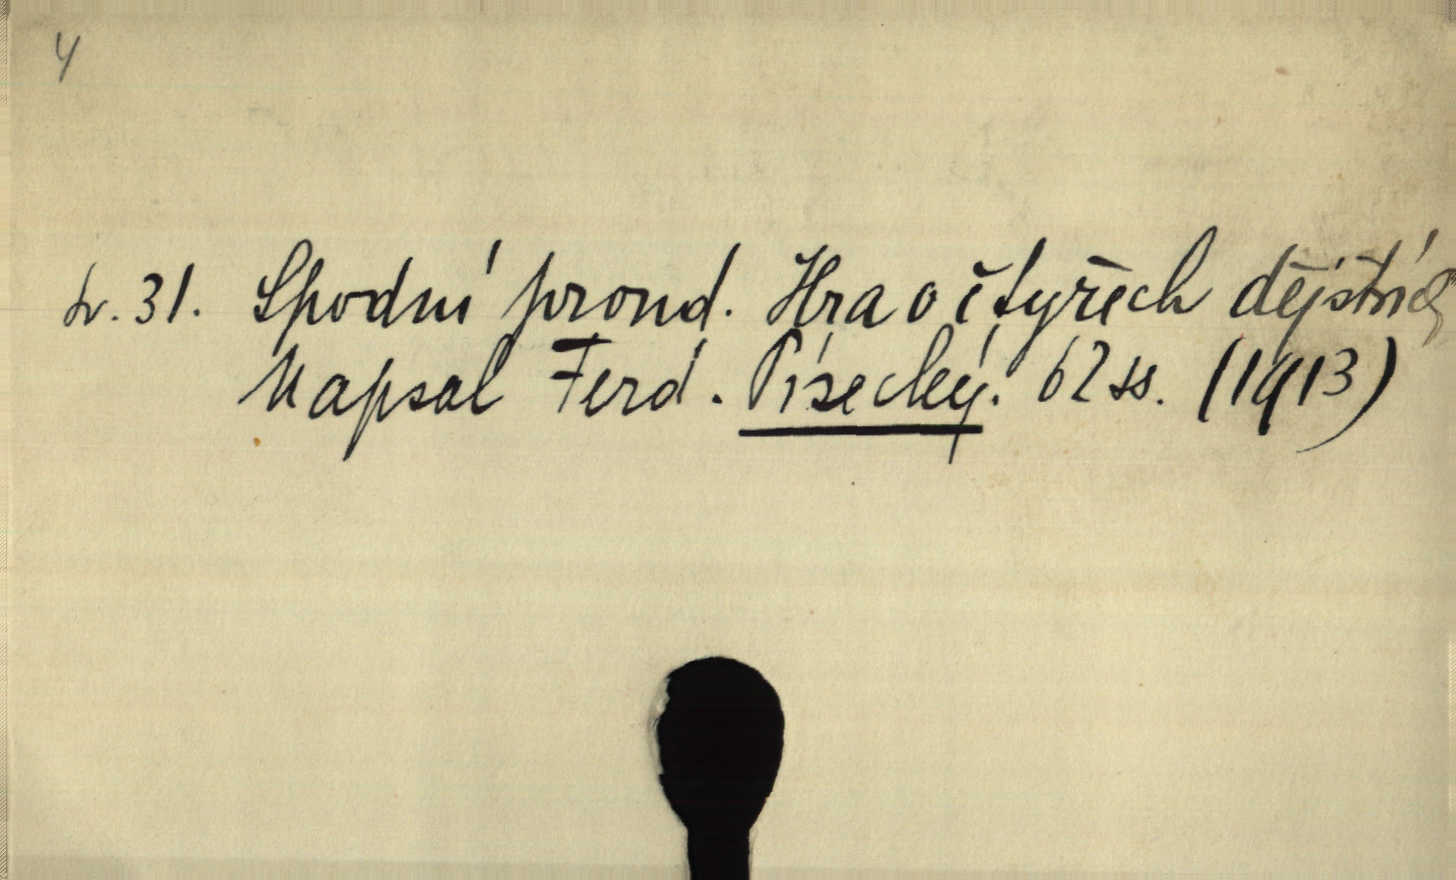 4
Sv. 31. Spodní proud. Hra o čtyřech dějstvích
Napsal Ferd. Písecký. 62 ss. (1913)